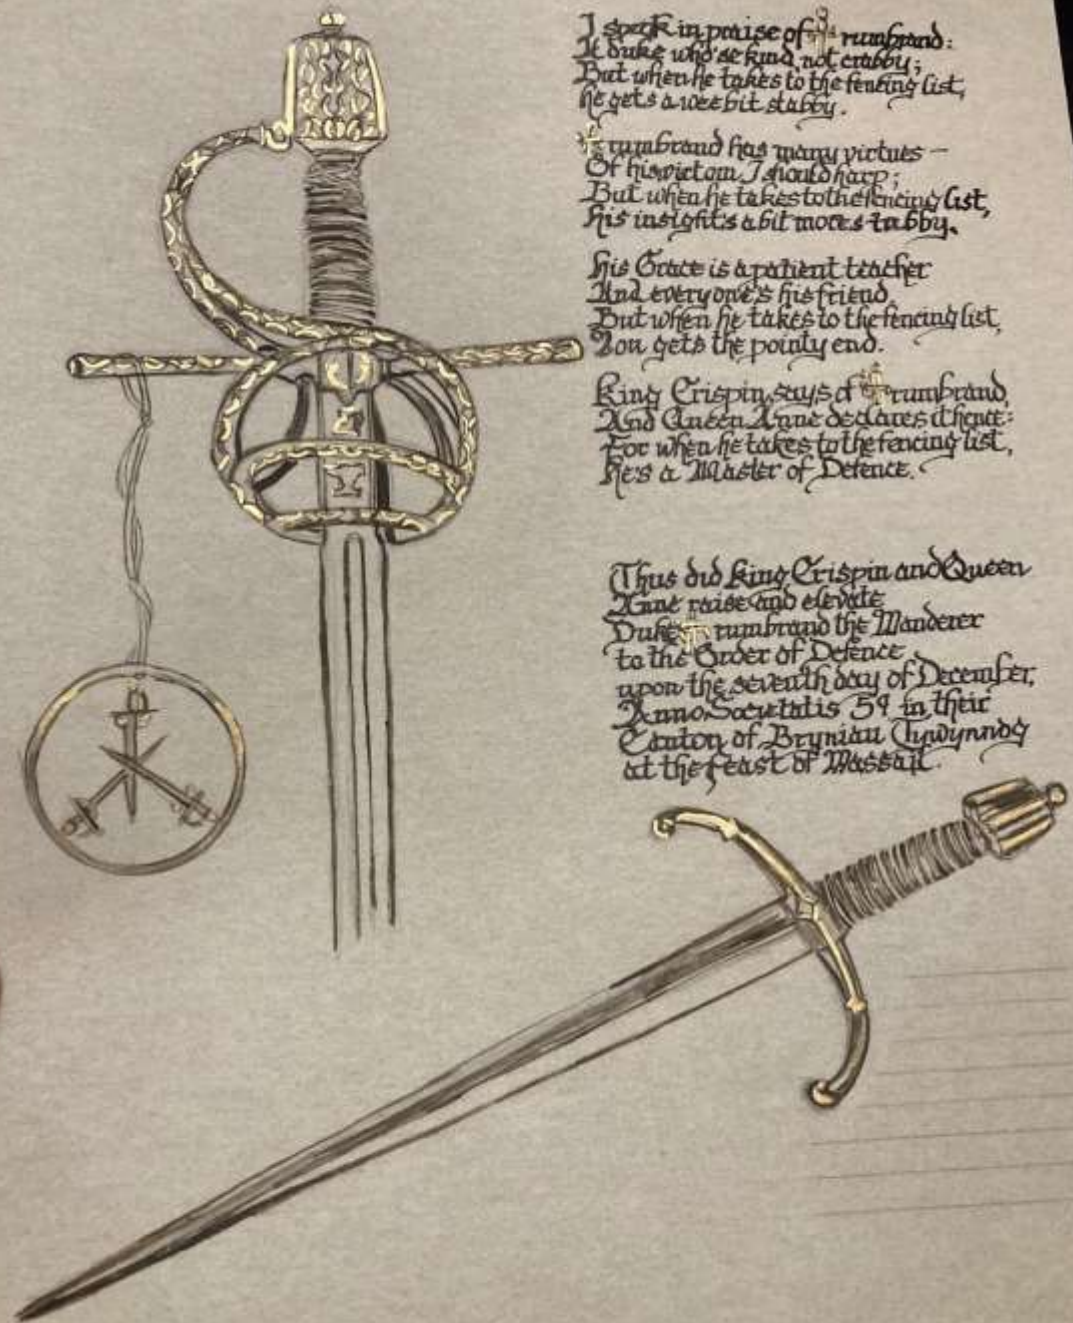 I speak in praise of Trumbrand:
A duke who'se kind, not crabby;
But when he takes to the fencing list,
he gets a wee bit stabby.
Trumbrand has many virtues –
Of his wictom I should harp;
But when he takes to the fencing list,
his insight's a bit more stabby.
His Grace is a patient teacher
And everyone's his friend
But when he takes to the fencing list,
You gets the pointy end.
King Crispin says of Trumbrand,
And Queen Anne declares it hence:
For when he takes to the fencing list,
He's a Master of Defence.
Thus did King Crispin and Queen
Anne raise and elevate
Duke Trumbrand the Wanderer
to the Order of Defence
upon the seventh day of December,
Anno Societatis 59 in their
Canton of Bryniau Tywynnog
at the feast of Wassail.